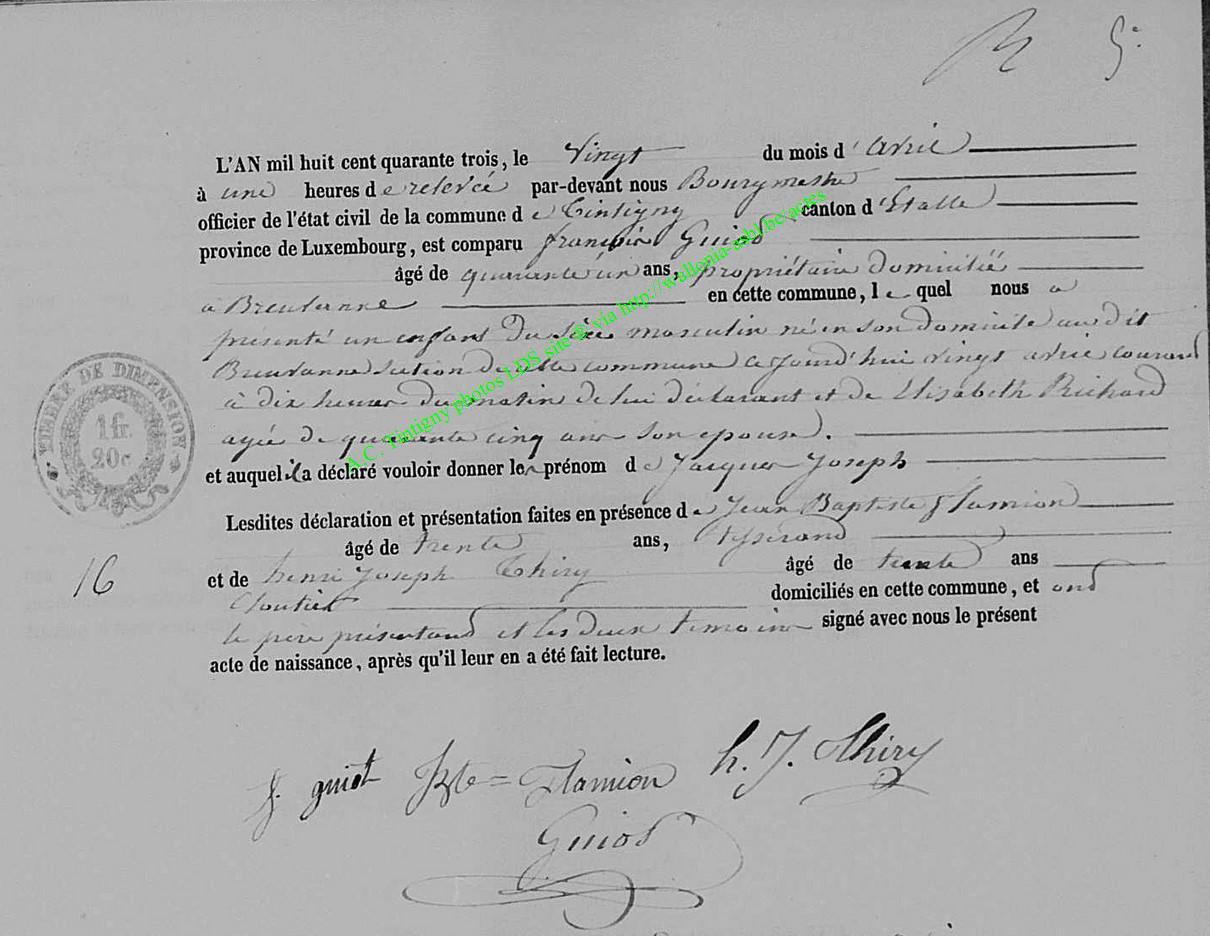 L'AN mil huit cent quarante trois, le Vingt du mois d'avril
à une heures de relevé par-devant nous Bourgmestre
officier de l'état civil de la commune de Tintigny canton d'Etalle
province de Luxembourg, est comparu françois Guiot
âgé de quarante un ans, propriétaire domicilié
à Breuvanne en cette commune, lequel nous a
présenté un enfant du sèxe masculin né en son domicile au dit
Breuvanne section de cette commune ce jourd'hui vingt avril courant
à dix heures du matin de lui déclarant et de Elisabeth Richard
agée de quarante cinq ans son epouse.
et auquel il a déclaré vouloir donner les prénom de Jacques Joseph
Lesdites déclaration et présentation faites en présence de Jean Baptiste Flamion
âgé de trente ans, tisserand
et de henri Joseph Thiry âgé de trente ans
Cloutier domiciliés en cette commune, et ont
le père présentant et les deux temoins signé avec nous le présent
acte de naissance, après qu'il leur en a été fait lecture.
TIMBRE DE DIMENSION
1 fr.
20 c
16
f. guiot Jbte = Flamion h. J. Thiry
Guiot
A.C. Tintigny photos LDS site © via http://wallonia-asbl.be/actes